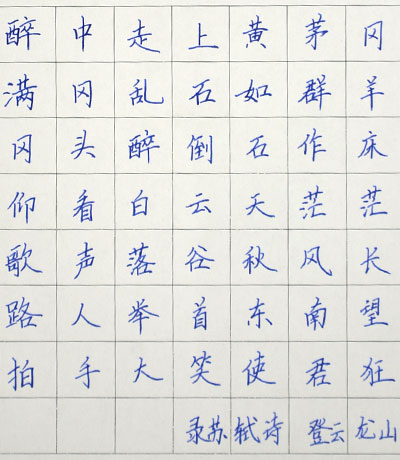 醉中走上黄茅冈
满冈乱石如群羊
冈头醉倒石作床
仰看白云天茫茫
歌声落谷秋风长
路人举首东南望
拍手大笑使君狂
录苏轼诗 登云龙山